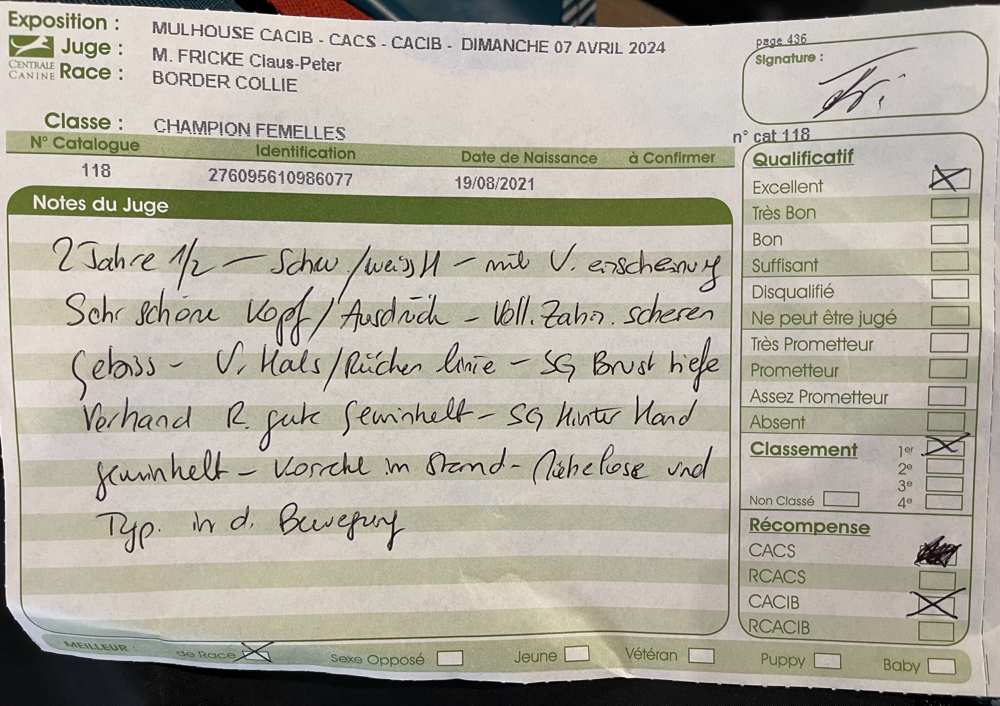 Exposition : MULHOUSE CACIB - CACS - CACIB - DIMANCHE 07 AVRIL 2024
Juge : M. FRICKE Claus-Peter
CENTRALE CANINE
Race : BORDER COLLIE
page 436
Signature :
Classe : CHAMPION FEMELLES
n° cat 118
N° Catalogue Identification Date de Naissance à Confirmer
118 276095610986077 19/08/2021
Notes du Juge
2 Jahre 1/2 — Schw/weiss H — mit V. erscheinung
Sehr schöne Kopf/Ausdrück - Voll. Zahn. scheren
Gebiss - V. Hals/Rücken linie - SG Brust tiefe
Vorhand R. gute Gewinkelt - SG Hinter Hand
gewinkelt - Korrekt im Stand - und
Typ. in d. Bewegung
Qualificatif
Excellent
Très Bon
Bon
Suffisant
Disqualifié
Ne peut être jugé
Très Prometteur
Prometteur
Assez Prometteur
Absent
Classement 1er
2e
3e
Non Classé 4e
Récompense
CACS
RCACS
CACIB
RCACIB
MEILLEUR : de Race Sexe Opposé Jeune Vétéran Puppy Baby